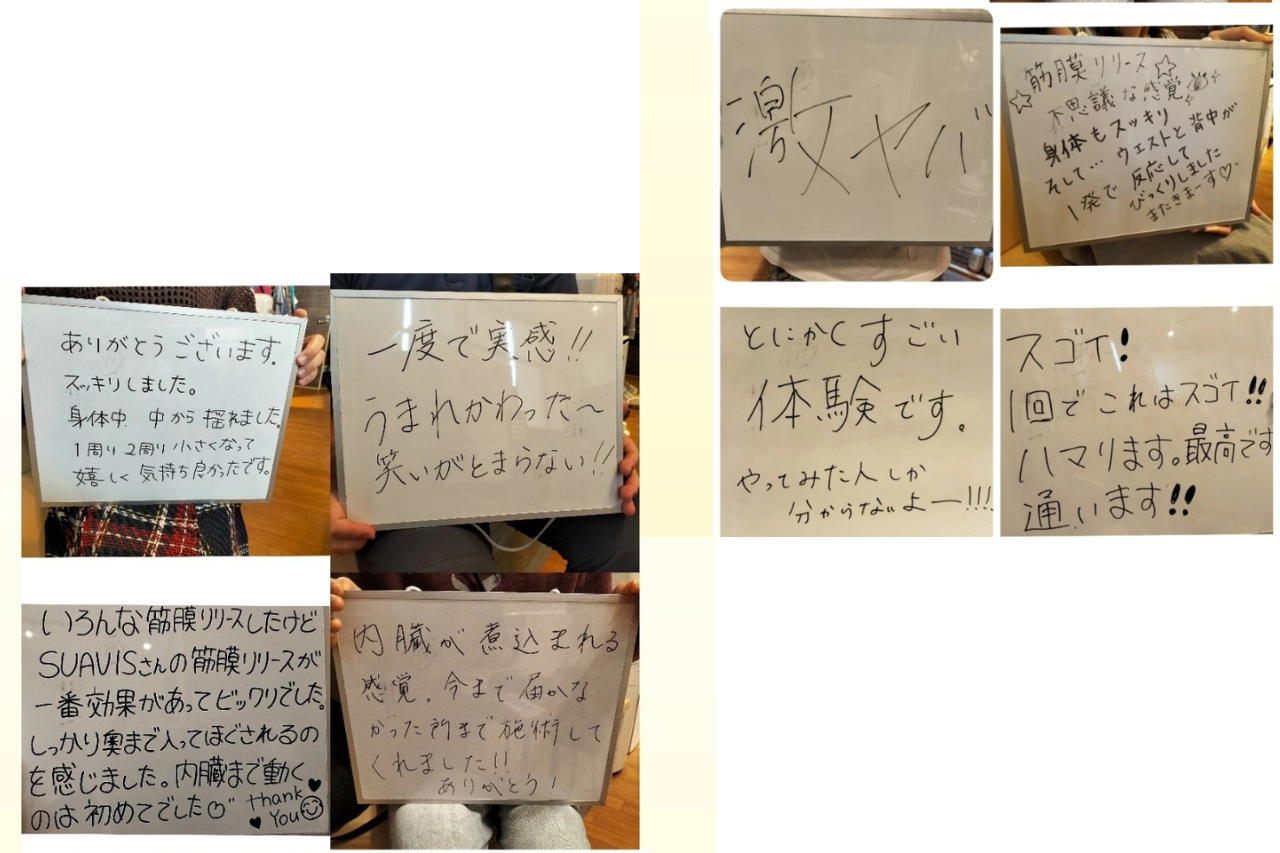 ありがとうございます。
スッキリしました。
身体中 中から 揺れました。
1周り 2周り 小さくなって
嬉しく 気持ち良かったです。
一度で実感!!
うまれかわった〜
笑いがとまらない!!
いろんな筋膜リリースしたけど
SUAVISさんの筋膜リリースが
一番効果があってビックリでした。
しっかり奥まで入ってほぐされるの
を感じました。内臓まで動く
のは初めてでした
thank
You
内臓が煮込まれる
感覚。今まで届かな
かった所まで施術して
くれました!!
ありがとう!
激ヤバ
筋膜リリース
不思議な感覚
身体もスッキリ
そして… ウェストと背中が
1発で 反応して
びっくりしました
またきまーす♡
とにかくすごい
体験です。
やってみた人しか
分からないよー!!!
スゴイ!
1回でこれはスゴイ!!
ハマります。最高です
通います!!